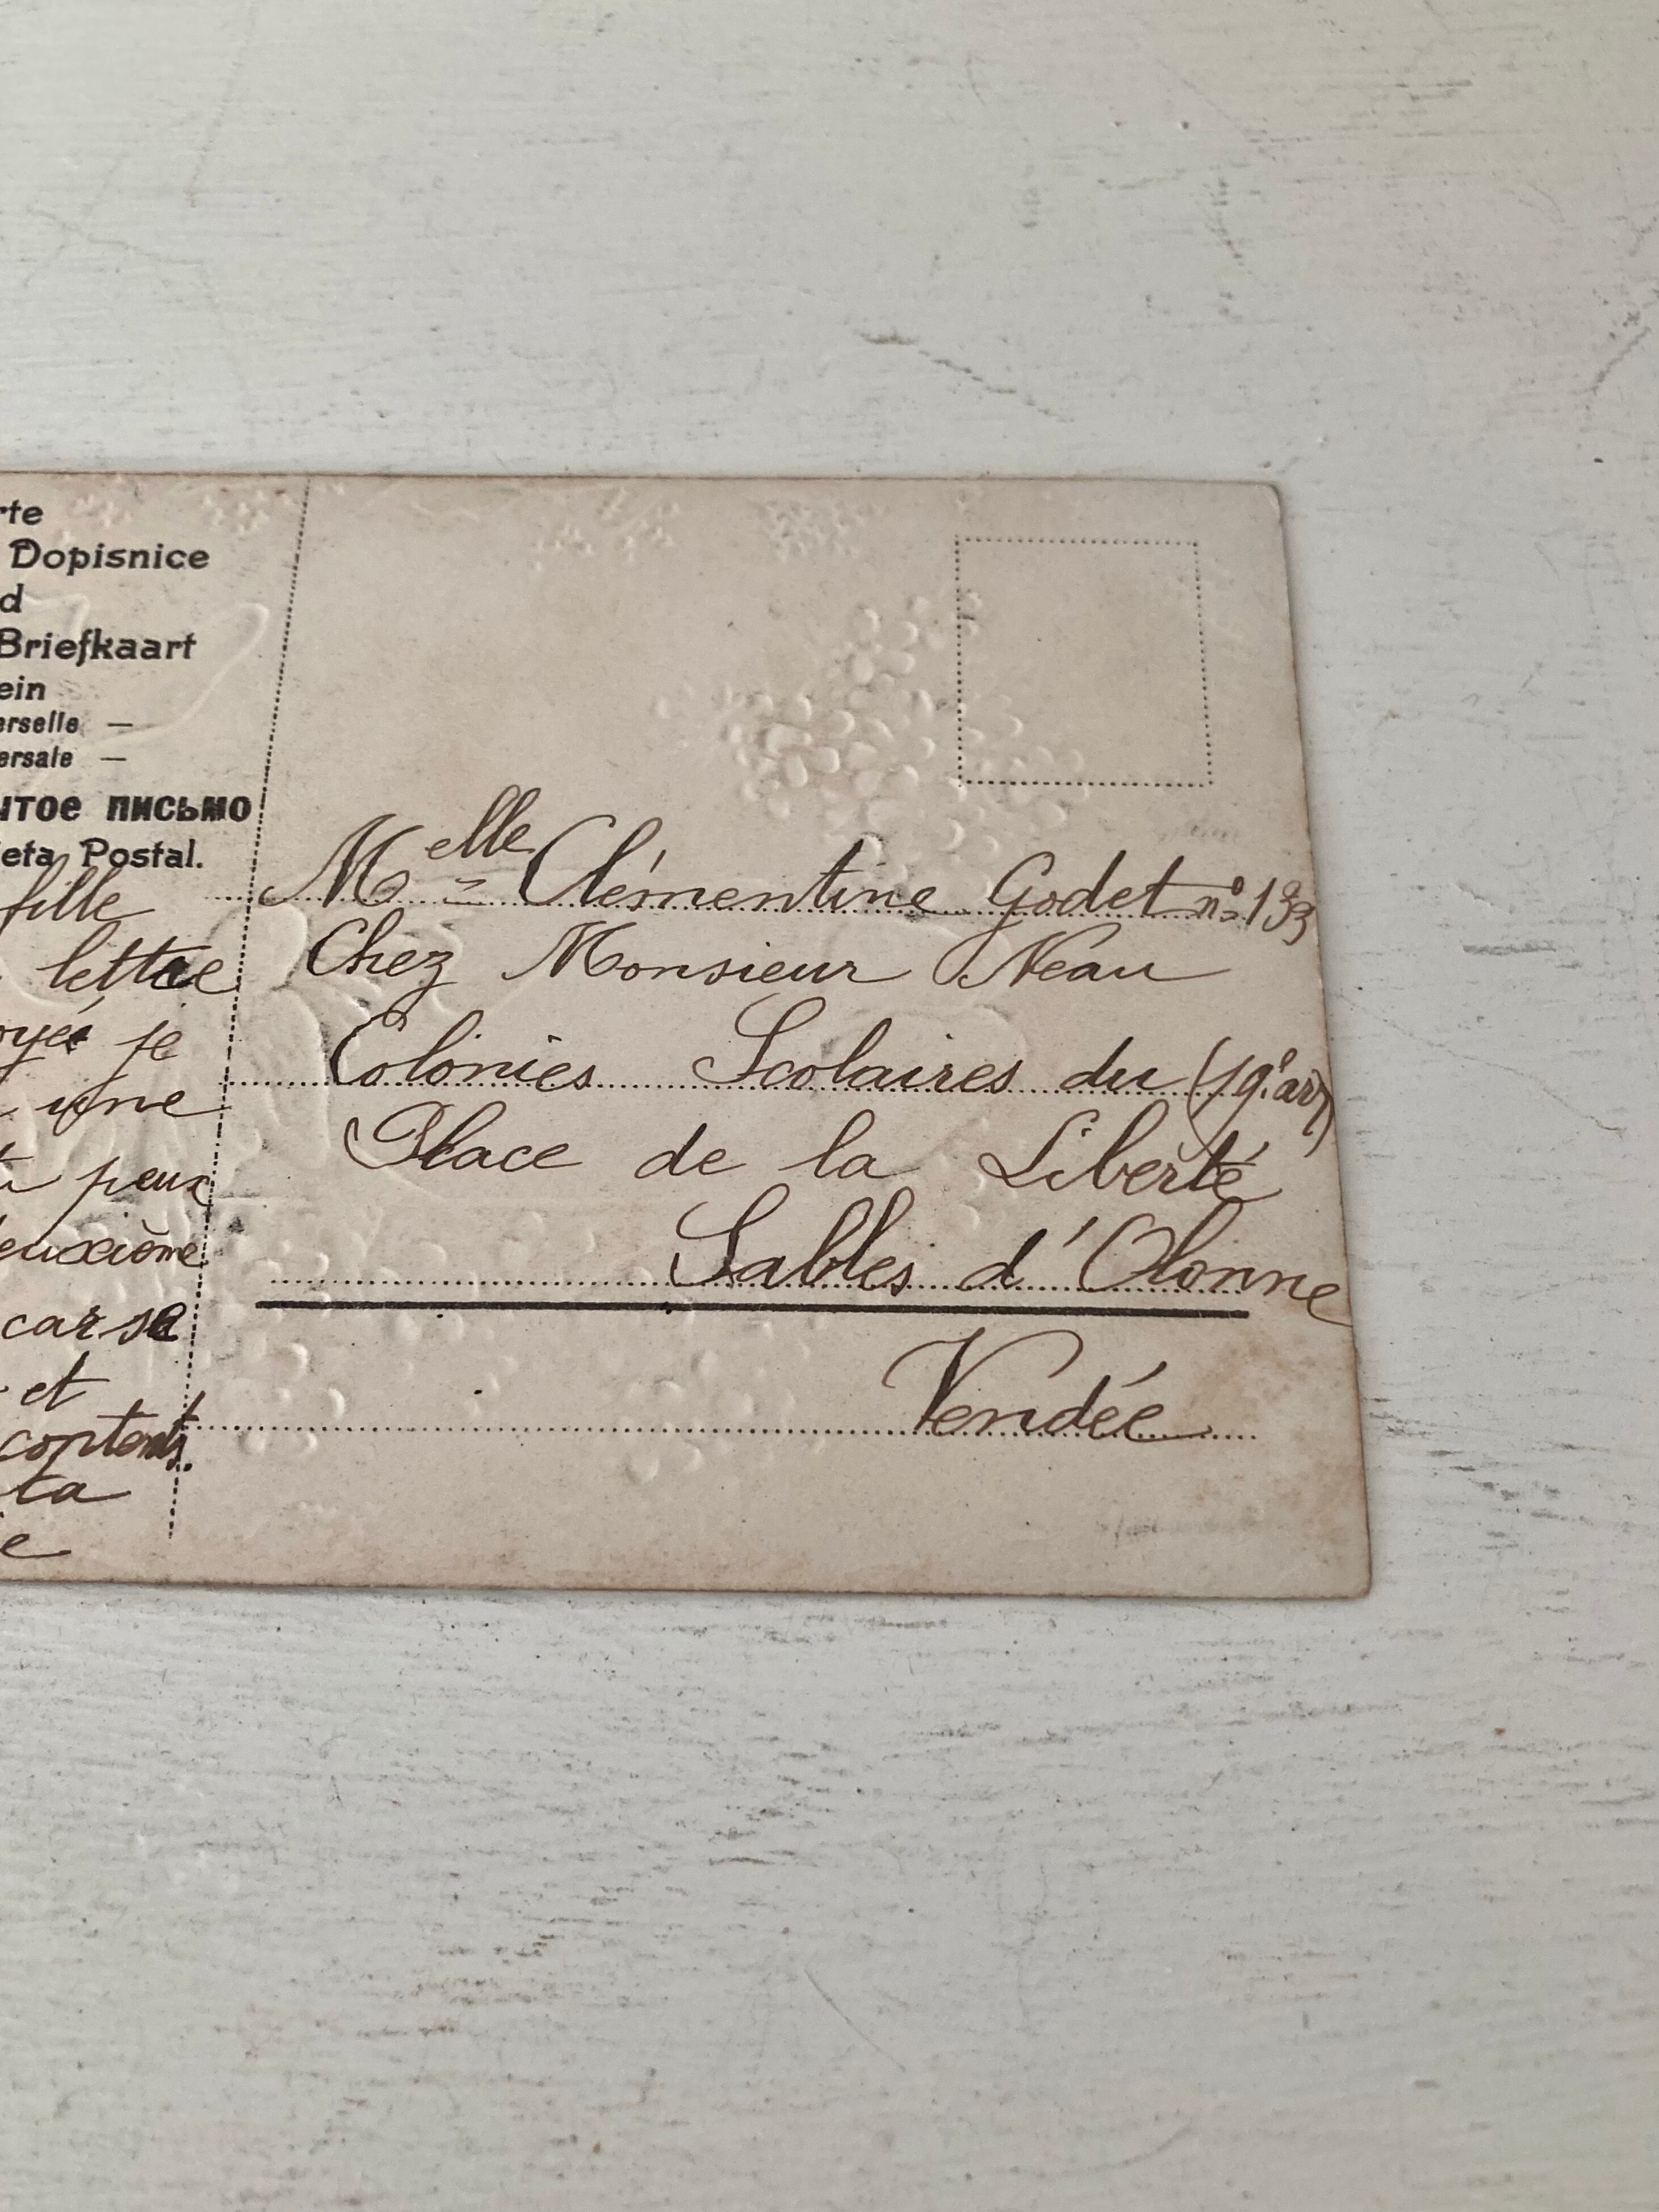 rte
Dopisnice
d
Briefkaart
ein
erselle —
ersale —
ытое письмо
eta Postal.
fille
lettre
oyée je
une
peux
euxième
car se
et
contents.
ta
e
Melle Clémentine Godet n° 133
Chez Monsieur Neau
Colonies Scolaires du (19e arr)
Place de la Liberté
Sables d'Olonne
Vendée